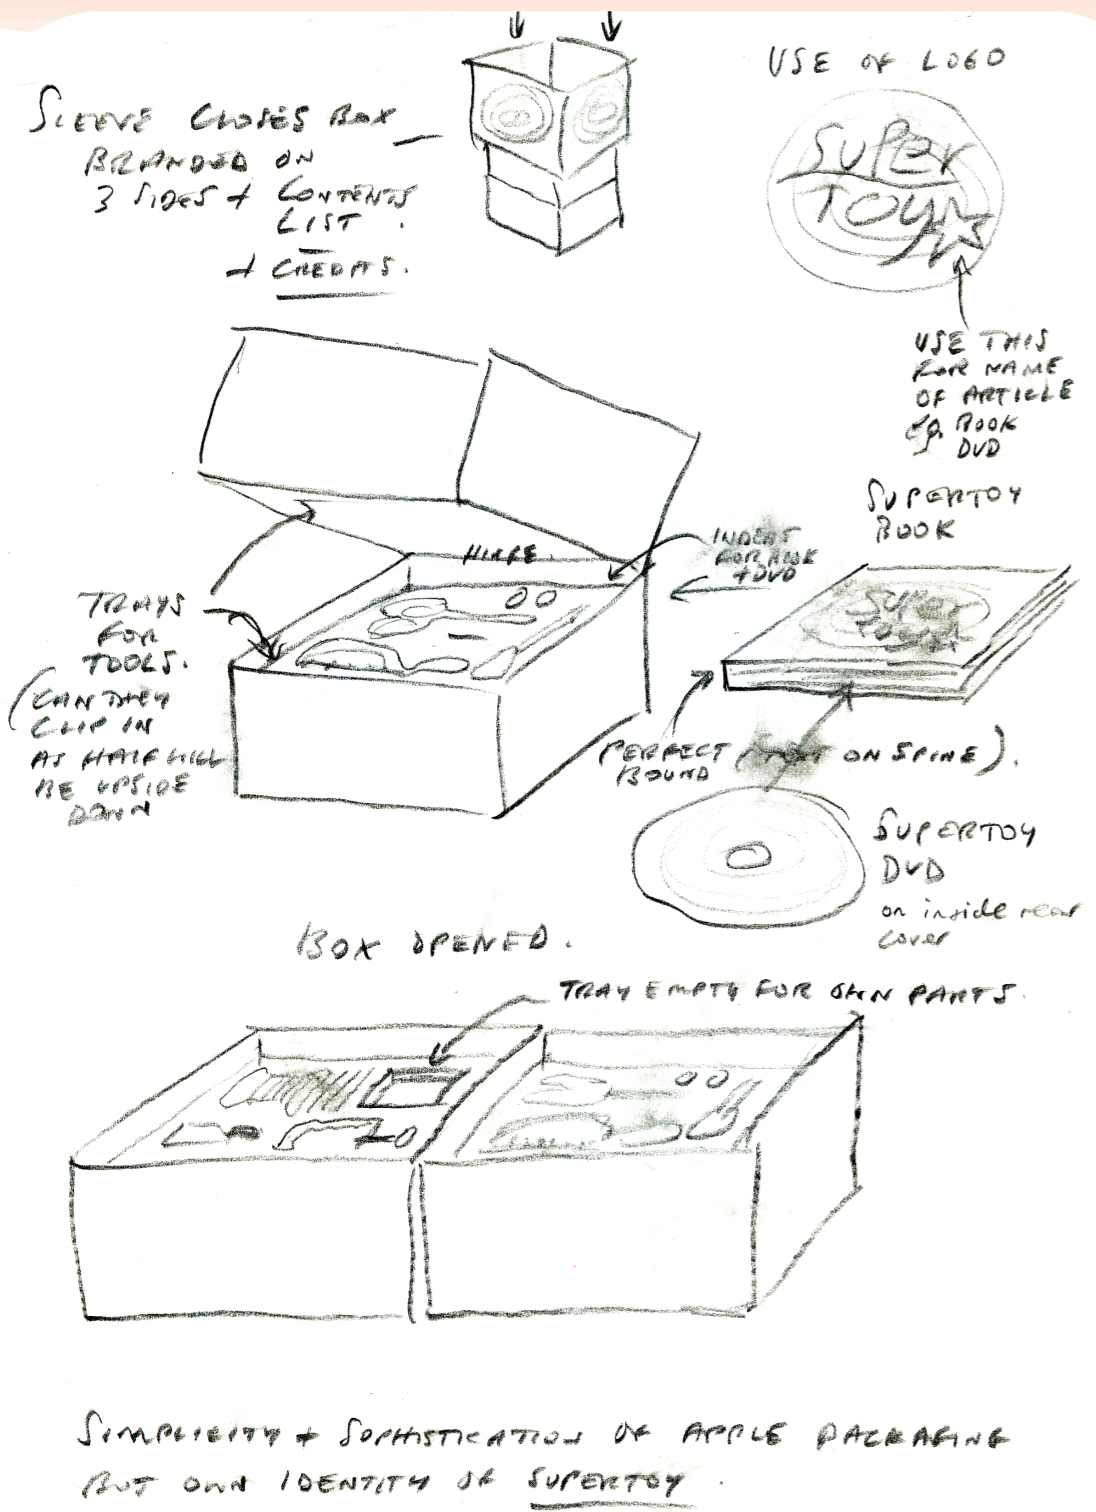 SLEEVE CLOSES BOX
BRANDED ON
3 SIDES + CONTENTS
LIST.
+ CREDITS.
USE OF LOGO
SUPER
TOY
USE THIS
FOR NAME
OF ARTICLE
eg. BOOK
DVD
SUPERTOY
BOOK
HINGE.
INDENT
FOR BOOK
+ DVD
TRAYS
FOR
TOOLS.
(CAN THEY
CLIP IN
AS HALF WILL
BE UPSIDE
DOWN
SUPER
PERFECT ( ON SPINE).
BOUND
SUPERTOY
DVD
on inside rear
cover
BOX OPENED.
TRAY EMPTY FOR OWN PARTS.
SIMPLICITY + SOPHISTICATION OF APPLE PACKAGING
BUT OWN IDENTITY OF SUPERTOY.